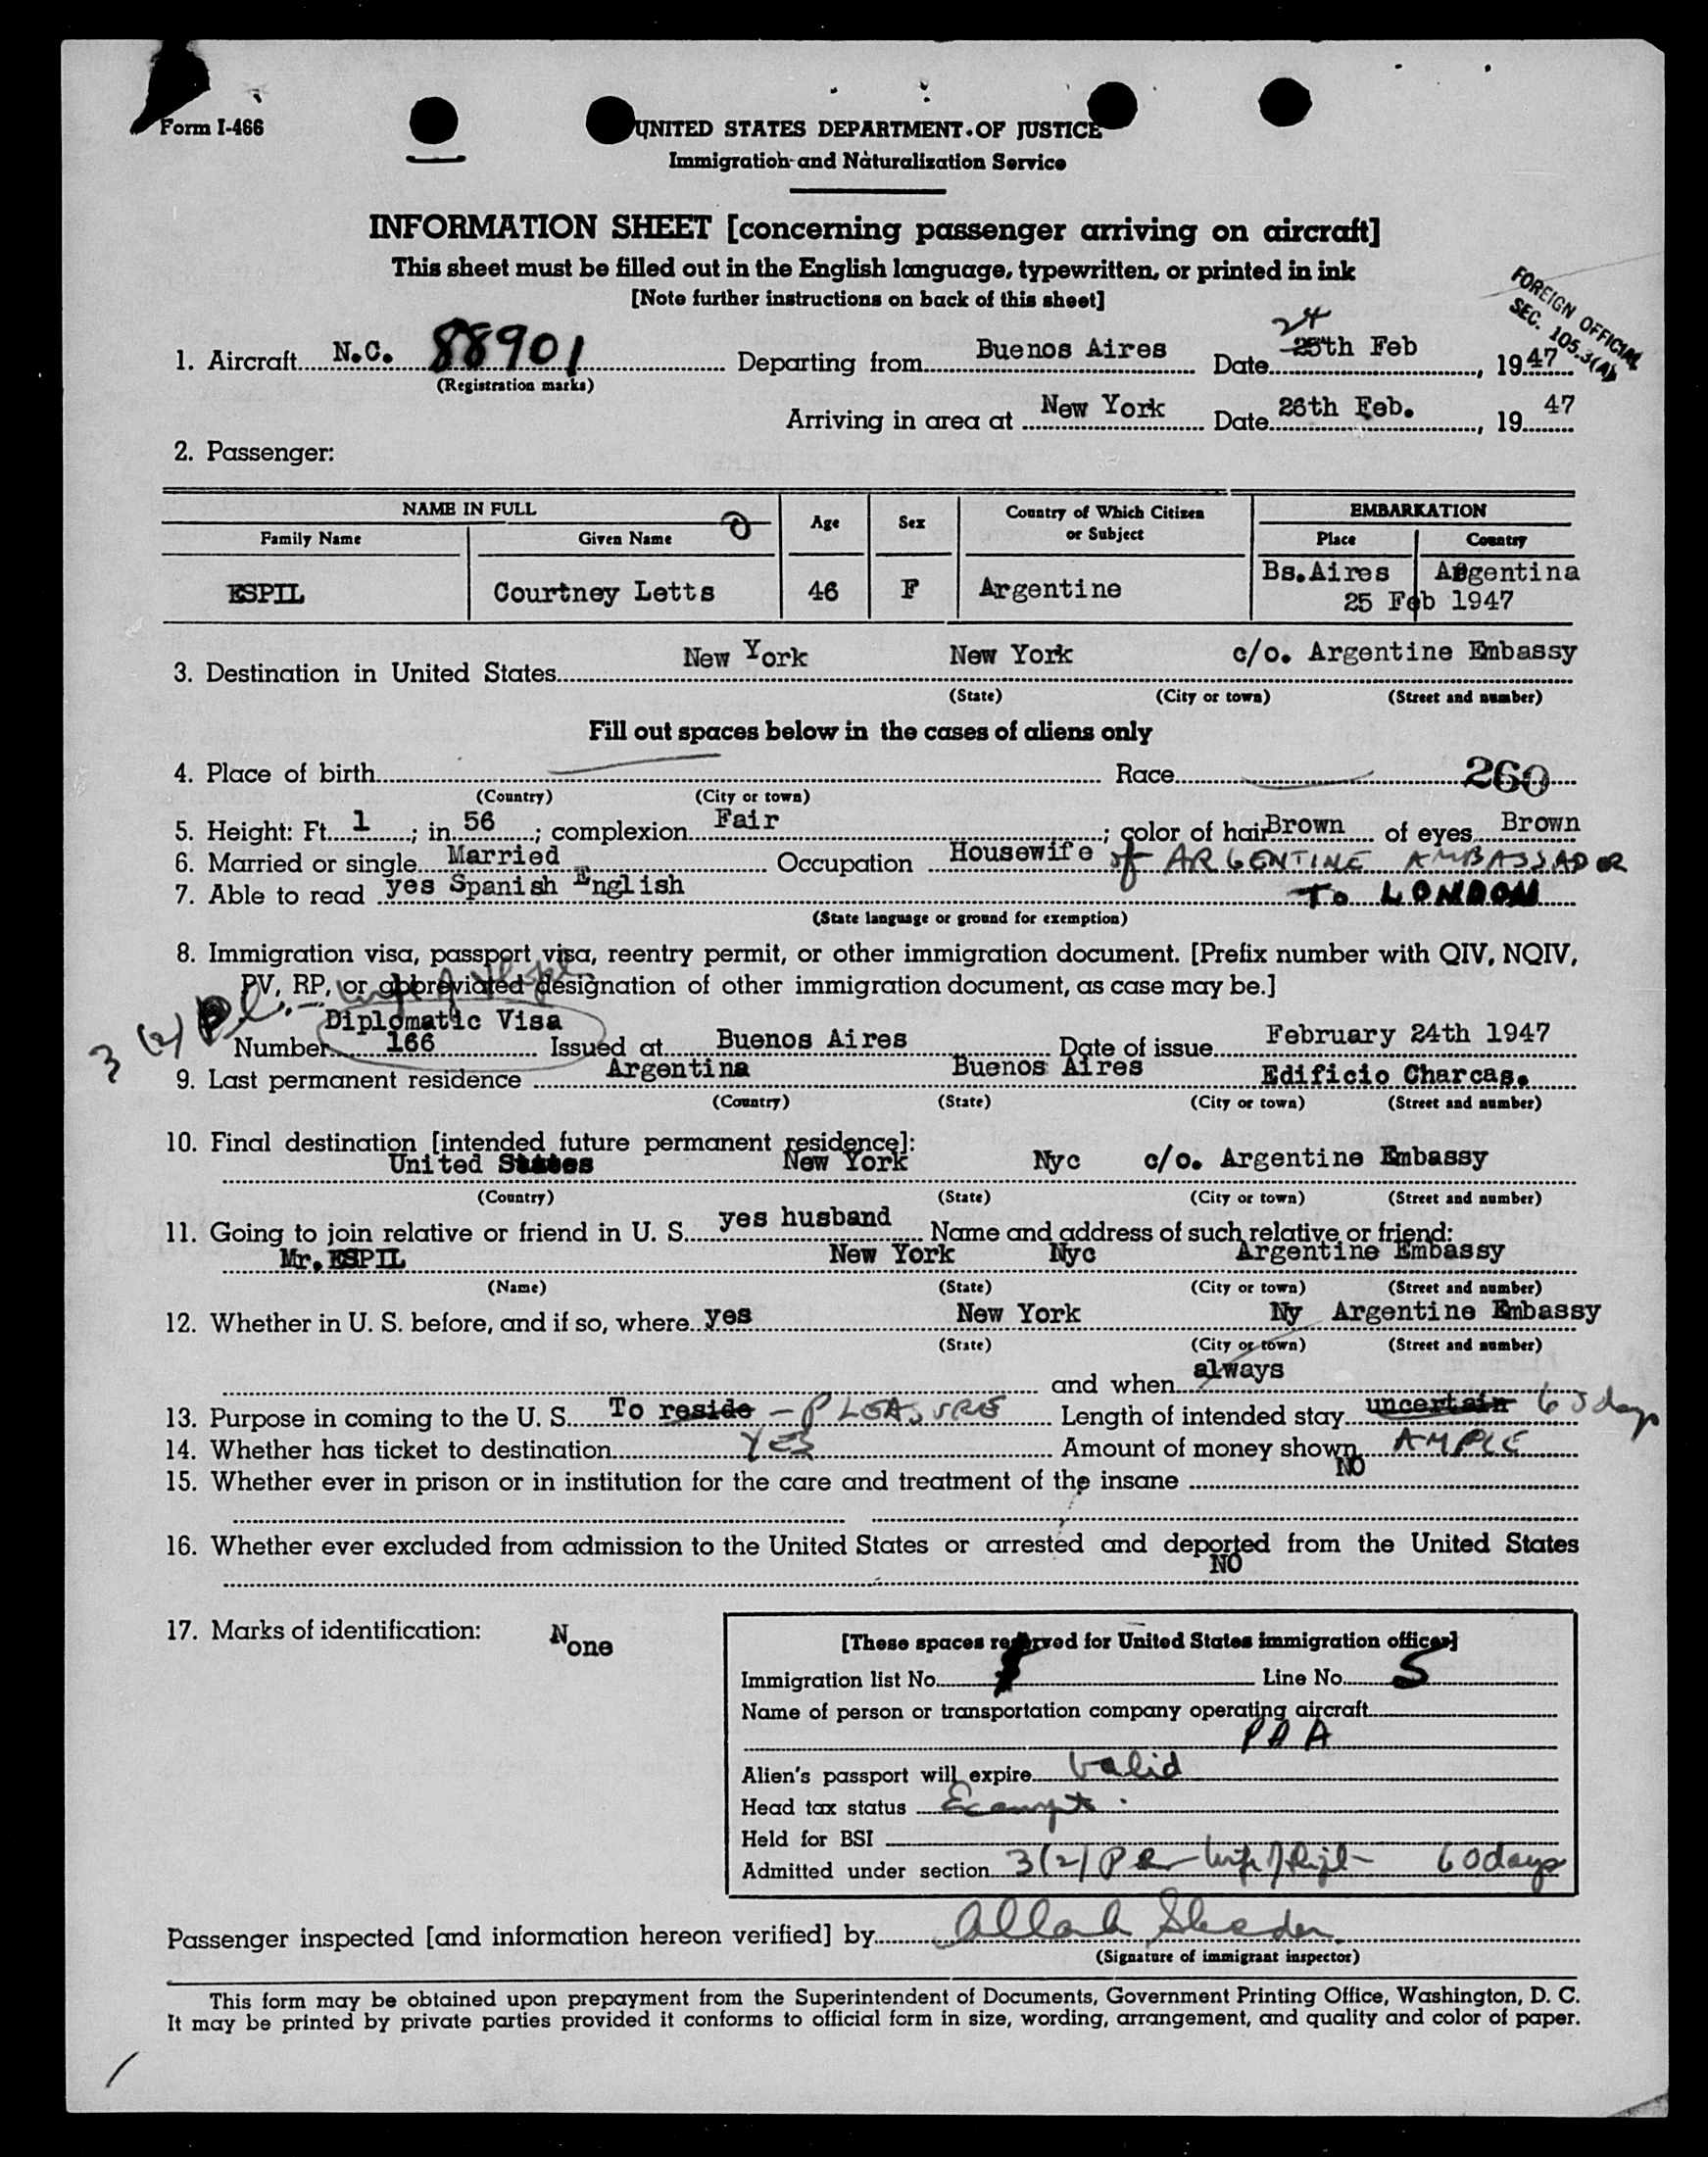 Form I-466
UNITED STATES DEPARTMENT OF JUSTICE
Immigration and Naturalization Service
INFORMATION SHEET [concerning passenger arriving on aircraft]
This sheet must be filled out in the English language, typewritten, or printed in ink
[Note further instructions on back of this sheet]
FOREIGN OFFICIAL
SEC. 105.3(4)
1. Aircraft N.C. 88901 Departing from Buenos Aires Date 24 25th Feb, 1947
(Registration marks)
Arriving in area at New York Date 26th Feb., 19 47
2. Passenger:
NAME IN FULL Age Sex Country of Which Citizen or Subject EMBARKATION
Family Name Given Name Place Country
ESPIL Courtney Letts 46 F Argentine Bs.Aires Argentina
25 Feb 1947
3. Destination in United States New York New York c/o. Argentine Embassy
(State) (City or town) (Street and number)
Fill out spaces below in the cases of aliens only
4. Place of birth Race 260
(Country) (City or town)
5. Height: Ft. 1; in. 56; complexion Fair; color of hair Brown of eyes Brown
6. Married or single Married Occupation Housewife of ARGENTINE AMBASSADOR
7. Able to read yes Spanish English TO LONDON
(State language or ground for exemption)
8. Immigration visa, passport visa, reentry permit, or other immigration document. [Prefix number with QIV, NQIV,
PV, RP, or abbreviated designation of other immigration document, as case may be.]
3 (2)
Diplomatic Visa
Number 166 Issued at Buenos Aires Date of issue February 24th 1947
9. Last permanent residence Argentina Buenos Aires Edificio Charcas.
(Country) (State) (City or town) (Street and number)
10. Final destination [intended future permanent residence]:
United States New York Nyc c/o. Argentine Embassy
(Country) (State) (City or town) (Street and number)
11. Going to join relative or friend in U. S. yes husband Name and address of such relative or friend:
Mr. ESPIL New York Nyc Argentine Embassy
(Name) (State) (City or town) (Street and number)
12. Whether in U. S. before, and if so, where yes New York Ny Argentine Embassy
(State) (City or town) (Street and number)
and when always
13. Purpose in coming to the U. S. To reside - PLEASURE Length of intended stay uncertain 60 days
14. Whether has ticket to destination YES Amount of money shown AMPLE
15. Whether ever in prison or in institution for the care and treatment of the insane NO
16. Whether ever excluded from admission to the United States or arrested and deported from the United States
NO
17. Marks of identification: None
[These spaces reserved for United States immigration officer]
Immigration list No. Line No. 5
Name of person or transportation company operating aircraft
PAA
Alien's passport will expire Valid
Head tax status Exempt
Held for BSI
Admitted under section 3(2) 60 days
Passenger inspected [and information hereon verified] by
(Signature of immigrant inspector)
This form may be obtained upon prepayment from the Superintendent of Documents, Government Printing Office, Washington, D. C.
It may be printed by private parties provided it conforms to official form in size, wording, arrangement, and quality and color of paper.